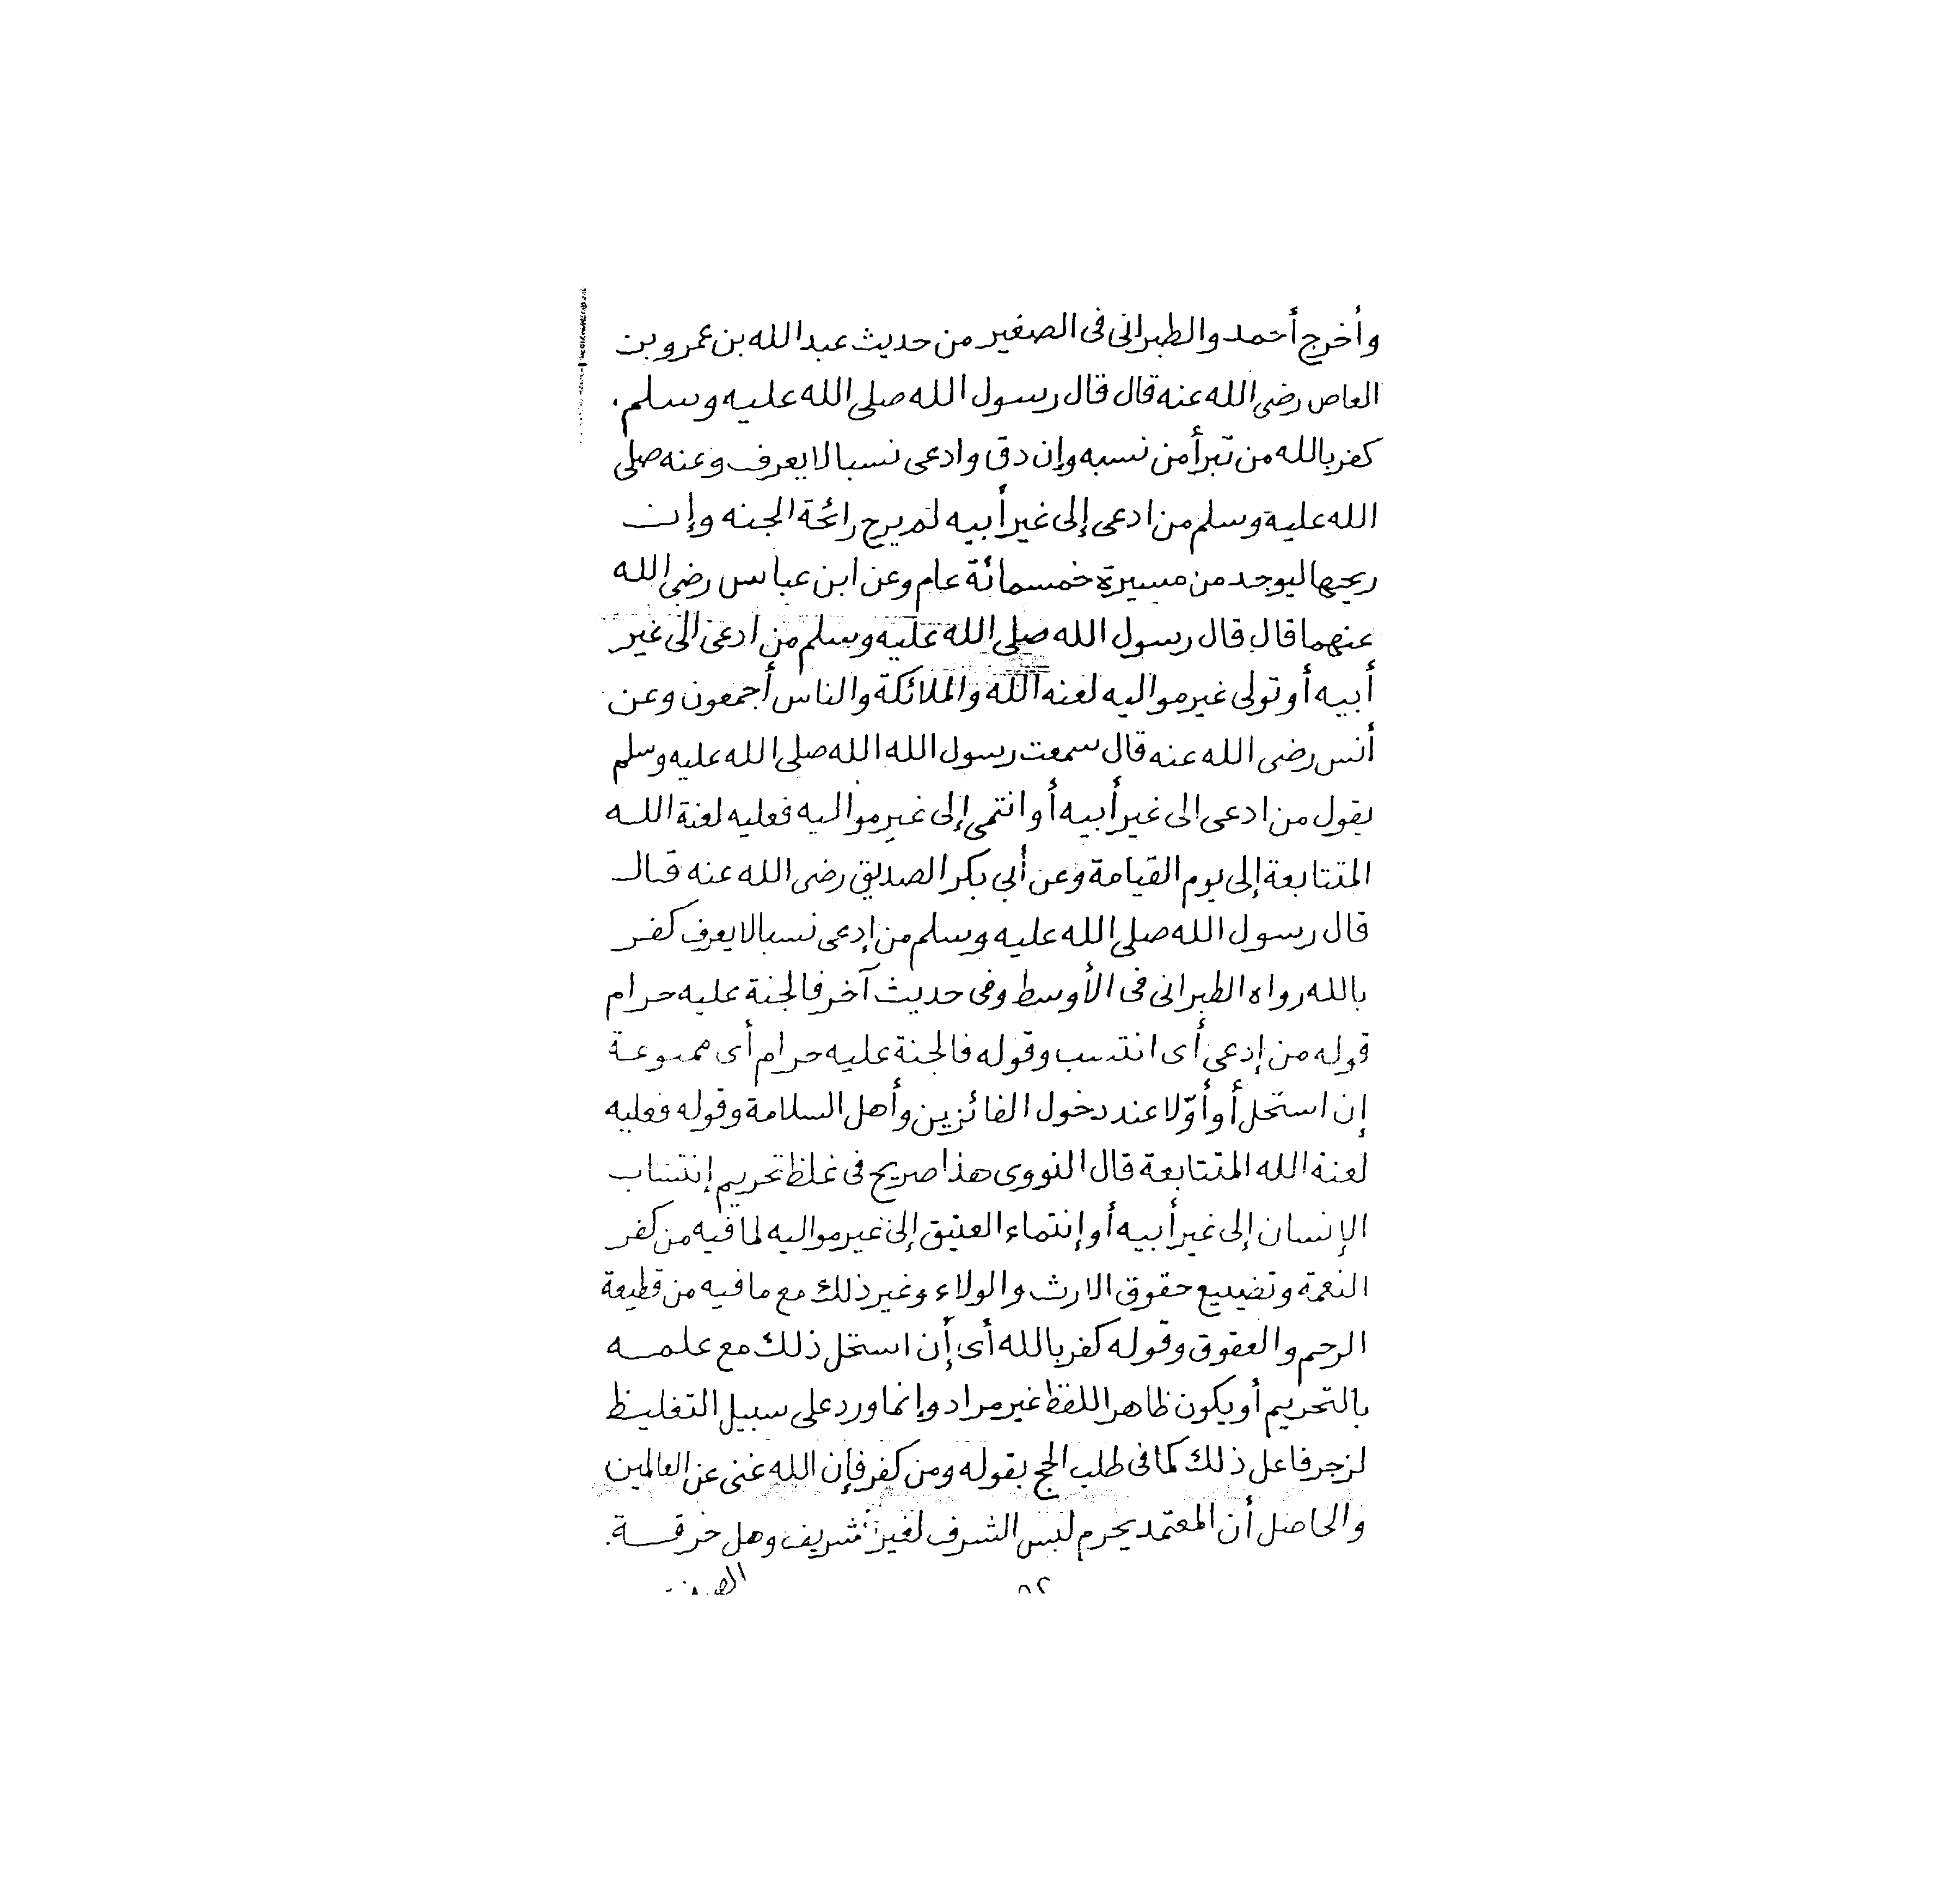 وأخرج أحمد والطبرانى فى الصغير من حديث عبد الله بن عمرو بن
العاص رضى الله عنه قال قال رسول الله صلى الله عليه وسلم.
كفر بالله من تبرأ من نسبه وإن دق وادعى نسبا لا يعرف وعنه صلى
الله عليه وسلم من ادعى إلى غير أبيه لم يرح رائحة الجنه وإن
ريحها ليوجد من مسيرة خمسمائة عام وعن ابن عباس رضى الله
عنهما قال قال رسول الله صلى الله عليه وسلم من ادعى الى غير
أبيه أو تولى غير مواليه لعنه الله والملائكة والناس أجمعون وعن
أنس رضى الله عنه قال سمعت رسول الله الله صلى الله عليه وسلم
يقول من ادعى الى غير أبيه أو انتمى إلى غير مواليه فعليه لعنة الله
المتتابعة إلى يوم القيامة وعن أبى بكر الصديق رضى الله عنه قال
قال رسول الله صلى الله عليه وسلم من إدعى نسبا لا يعرف كفر
بالله رواه الطبرانى فى الأوسط وفى حديث آخر فالجنة عليه حرام
قوله من إدعى أى انتسب وقوله فالجنة عليه حرام أى ممنوعة
إن استحل أو أوّلا عند دخول الفائزين وأهل السلامة وقوله فعليه
لعنة الله المتتابعة قال النووى هذا صريح فى غلظ تحريم إنتساب
الإنسان إلى غير أبيه أو إنتماء العتيق إلى غير مواليه لما فيه من كفر
النعمة وتضييع حقوق الارث والولاء وغير ذلك مع ما فيه من قطيعة
الرحم والعقوق وقوله كفر بالله أى إن استحل ذلك مع علمه
بالتحريم أو يكون ظاهر اللفظ غير مراد وإنما ورد على سبيل التغليظ
لزجر فاعل ذلك كما فى طلب الحج بقوله ومن كفر فإن الله غنى عن العالمين
والحاصل أن المعتمد يحرم لبس الشرف لغير شريف وهل خرقة.